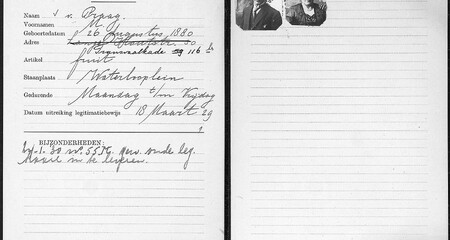 Naam v. Praag.
Voornamen M. J.
Geboortedatum 26 Augustus 1880
Adres Houtstr. 50.
Transvaalkade 116
Artikel fruit
Staanplaats Waterlooplein
Gedurende Maandag t/m Vrijdag
Datum uitreiking legitimatiebewijs 18 Maart 29
BIJZONDERHEDEN:
1-30 No. 55 oude leg.
in te leveren.